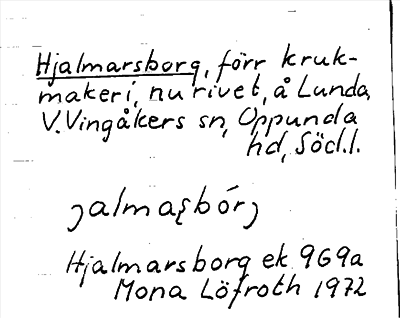 Hjalmarsborg, förr kruk-
makeri, nu rivet, å Lunda,
V. Vingåkers sn, Oppunda
hd, Södl.
jalmaʂbórj
Hjalmarsborg ek 9G9a
Mona Löfroth 1972